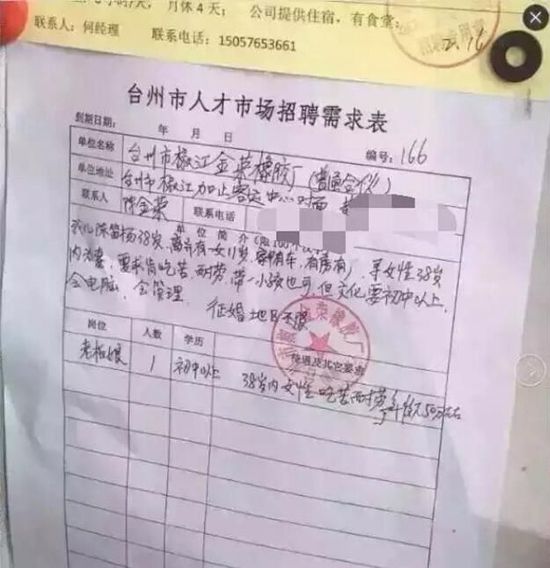 月休4天； 公司提供住宿，有食堂；
联系人：何经理 联系电话：15057653661
2.16
台州市人才市场招聘需求表
到期日期： 年 月 日 编号：166
单位名称 台州市椒江金荣橡胶厂(普通合伙)
单位地址 台州市椒江加止客运中心对面
联系人 陈金荣 联系电话
单位简介
38岁，离异有一女11岁，有车，有房，寻女性38岁
内为妻，要求肯吃苦耐劳，带一小孩也可，但文化要初中以上，
会电脑，会管理。 征婚地区不限
岗位 人数 学历 待遇及其它要求
老板娘 1 初中以上 38岁内女性吃苦耐劳年薪50万左右